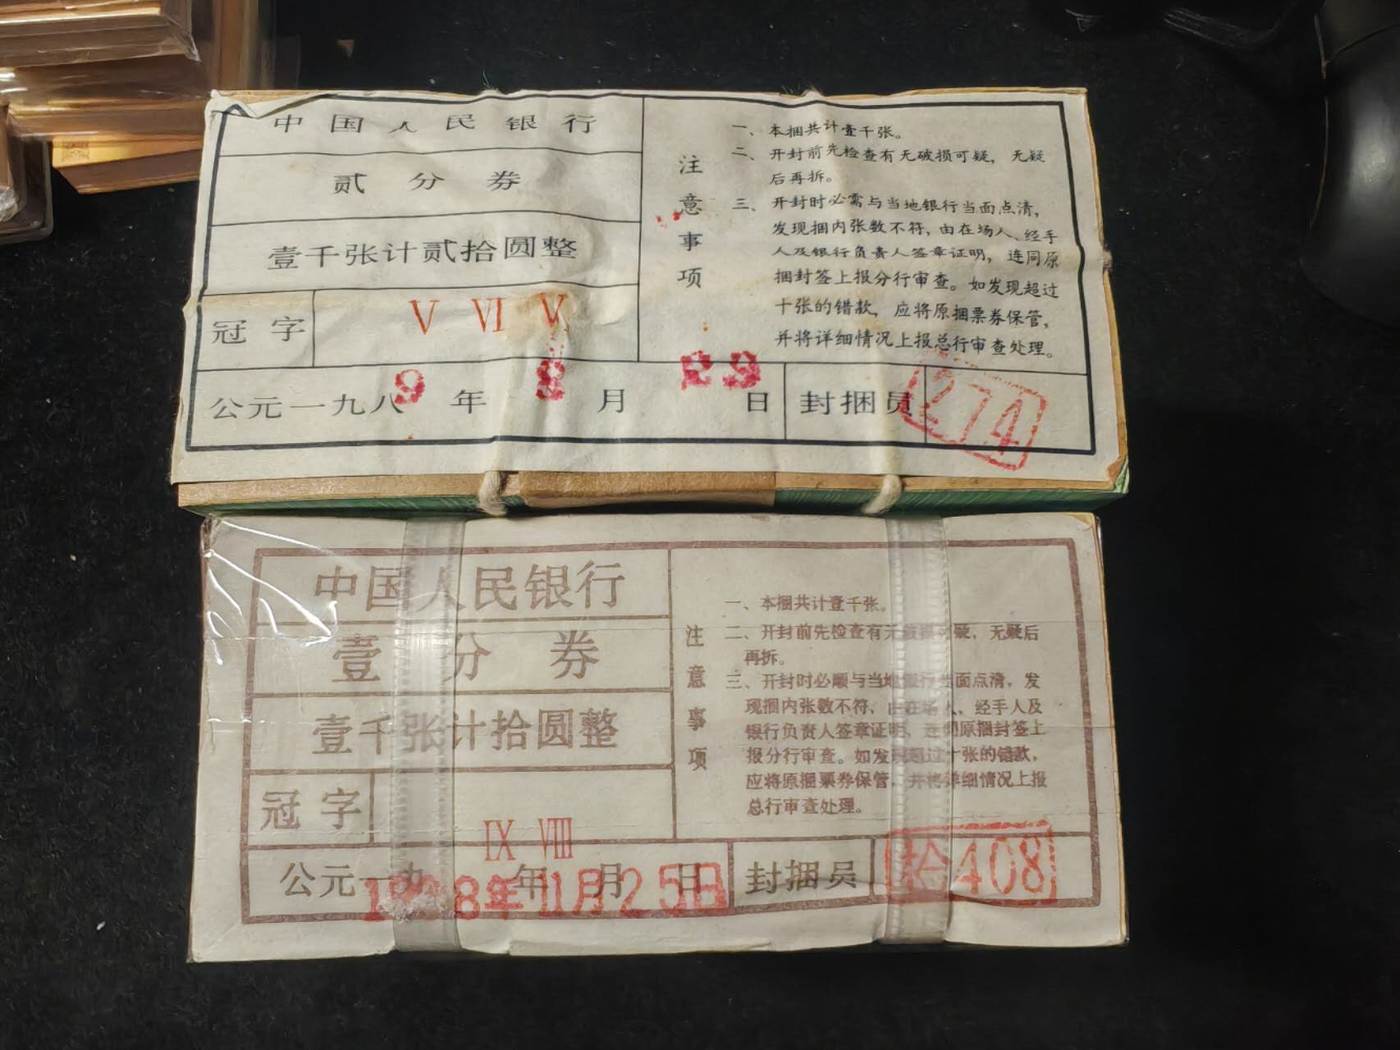 中国人民银行
贰分券
壹千张计贰拾圆整
冠字 V VI V
公元一九八9年8月29日 封捆员 274
注意事项
一、本捆共计壹千张。
二、开封前先检查有无破损可疑，无疑
后再拆。
三、开封时必需与当地银行当面点清，
发现捆内张数不符，由在场人、经手
人及银行负责人签章证明，连同原
捆封签上报分行审查。如发现超过
十张的错款，应将原捆票券保管，
并将详细情况上报总行审查处理。
中国人民银行
壹分券
壹千张计拾圆整
冠字
IX VIII
公元一九 年 月 日 封捆员 检408
8年11月25日
注意事项
一、本捆共计壹千张。
二、开封前先检查有无 疑，无疑后
再拆。
三、开封时必顺与当地银行当面点清，发
现捆内张数不符，由在场人、经手人及
银行负责人签章证明，连同原捆封签上
报分行审查。如发现超过十张的错款，
应将原捆票券保管，并将详细情况上报
总行审查处理。